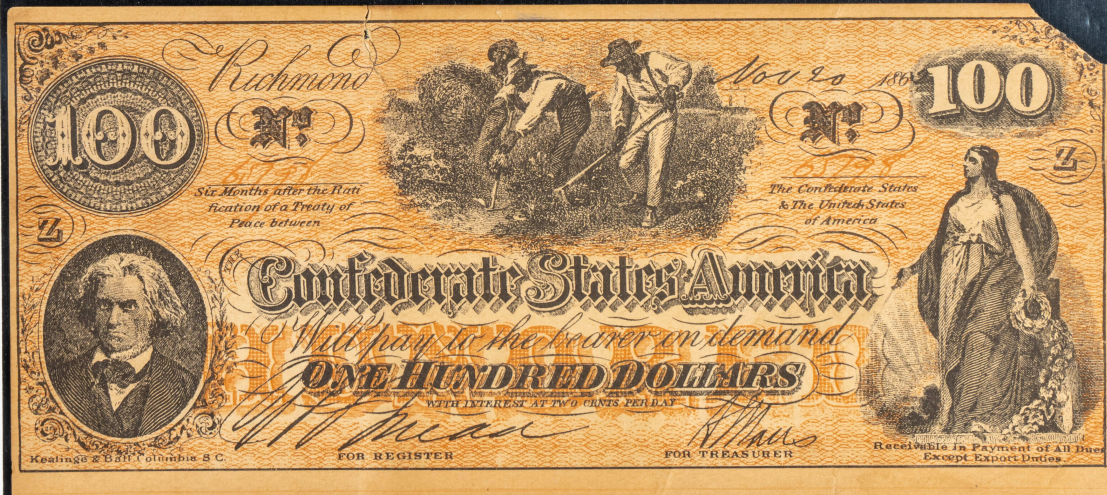 Richmond Nov 20 186
100 100
No No
65798
Six Months after the Rati
fication of a Treaty of
Peace between
The Confederate States
& The United States
of America
Z Z
Confederate States America
Will pay to the bearer on demand
ONE HUNDRED DOLLARS
WITH INTEREST AT TWO CENTS PER DAY
FOR REGISTER
FOR TREASURER
Keatinge & Ball Columbia S C.
Receivable in Payment of All Dues
Except Export Duties.